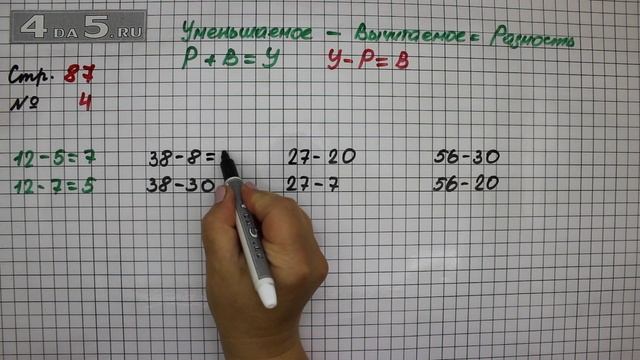 4DA5.RU
Уменьшаемое - Вычитаемое = Разность
Р + В = У У - Р = В
Стр. 87
№ 4
12 - 5 = 7 38 - 8 = 27 - 20 56 - 30
12 - 7 = 5 38 - 30 27 - 7 56 - 20